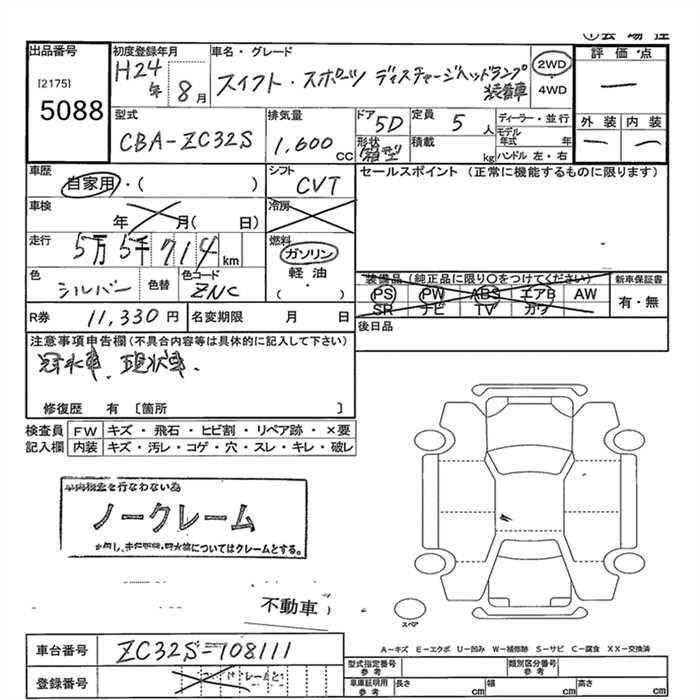 ①会場控
出品番号 初度登録年月 車名・グレード 評価点
[2175] H24年 8月 スイフト・スポーツ ディスチャージヘッドランプ装着車 2WD・4WD 一
5088
型式 排気量 ドア 5D 定員 5人 ディーラー・並行 外装 内装
CBA-ZC32S 1,600CC 形状 箱型 積載 kg モデル年式 年 一 一
ハンドル 左・右
車歴 シフト セールスポイント (正常に機能するものに限ります)
自家用・( ) CVT
車検 年 月( 日) 冷房
走行 5万5千714km 燃料
ガソリン
色 シルバー 色替 色コード ZNC 軽油・( )
装備品 (純正品に限り○をつけてください) 新車保証書
PS PW ABS エアB AW 有・無
SR ナビ TV カワ
R券 11,330円 名変期限 月 日 後日品
注意事項申告欄(不具合内容等は具体的に記入して下さい)
冠水車、現状車、
修復歴 有 〔箇所 〕
検査員 FW キズ・飛石・ヒビ割・リペア跡・×要
記入欄 内装 キズ・汚レ・コゲ・穴・スレ・キレ・破レ
車両検査を行なわない為
ノークレーム
但し、走行距離・冠水等についてはクレームとする。
不動車
スペア
A-キズ E-エクボ U-凹み W-補修跡 S-サビ C-腐食 XX-交換済
車台番号 ZC32S-108111
登録番号
型式指定番号 参考 類別区分番号 参考
車庫証明用 参考 長さ cm 幅 cm 高さ cm